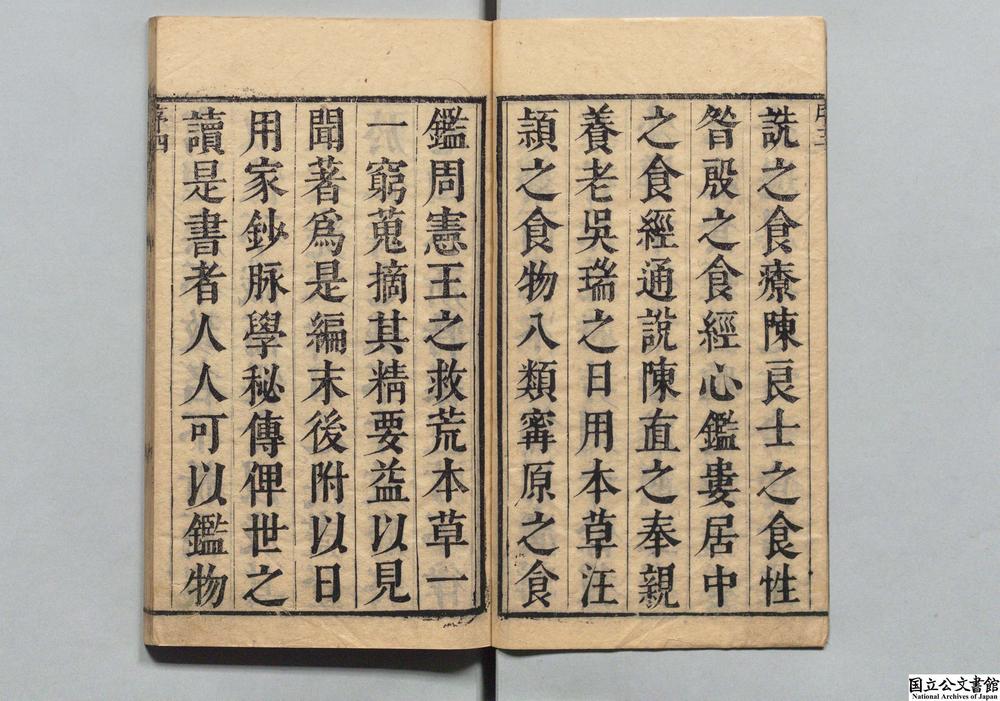 詵之食療陳良士之食性
昝殷之食經心鑑婁居中
之食經通說陳直之奉親
養老吳瑞之日用本草汪
頴之食物八類寗原之食
鑑周憲王之救荒本草一
一窮蒐摘其精要益以見
聞著爲是編末後附以日
用家鈔脉學秘傳俾世之
讀是書者人人可以鑑物
序四
国立公文書館
National Archives of Japan